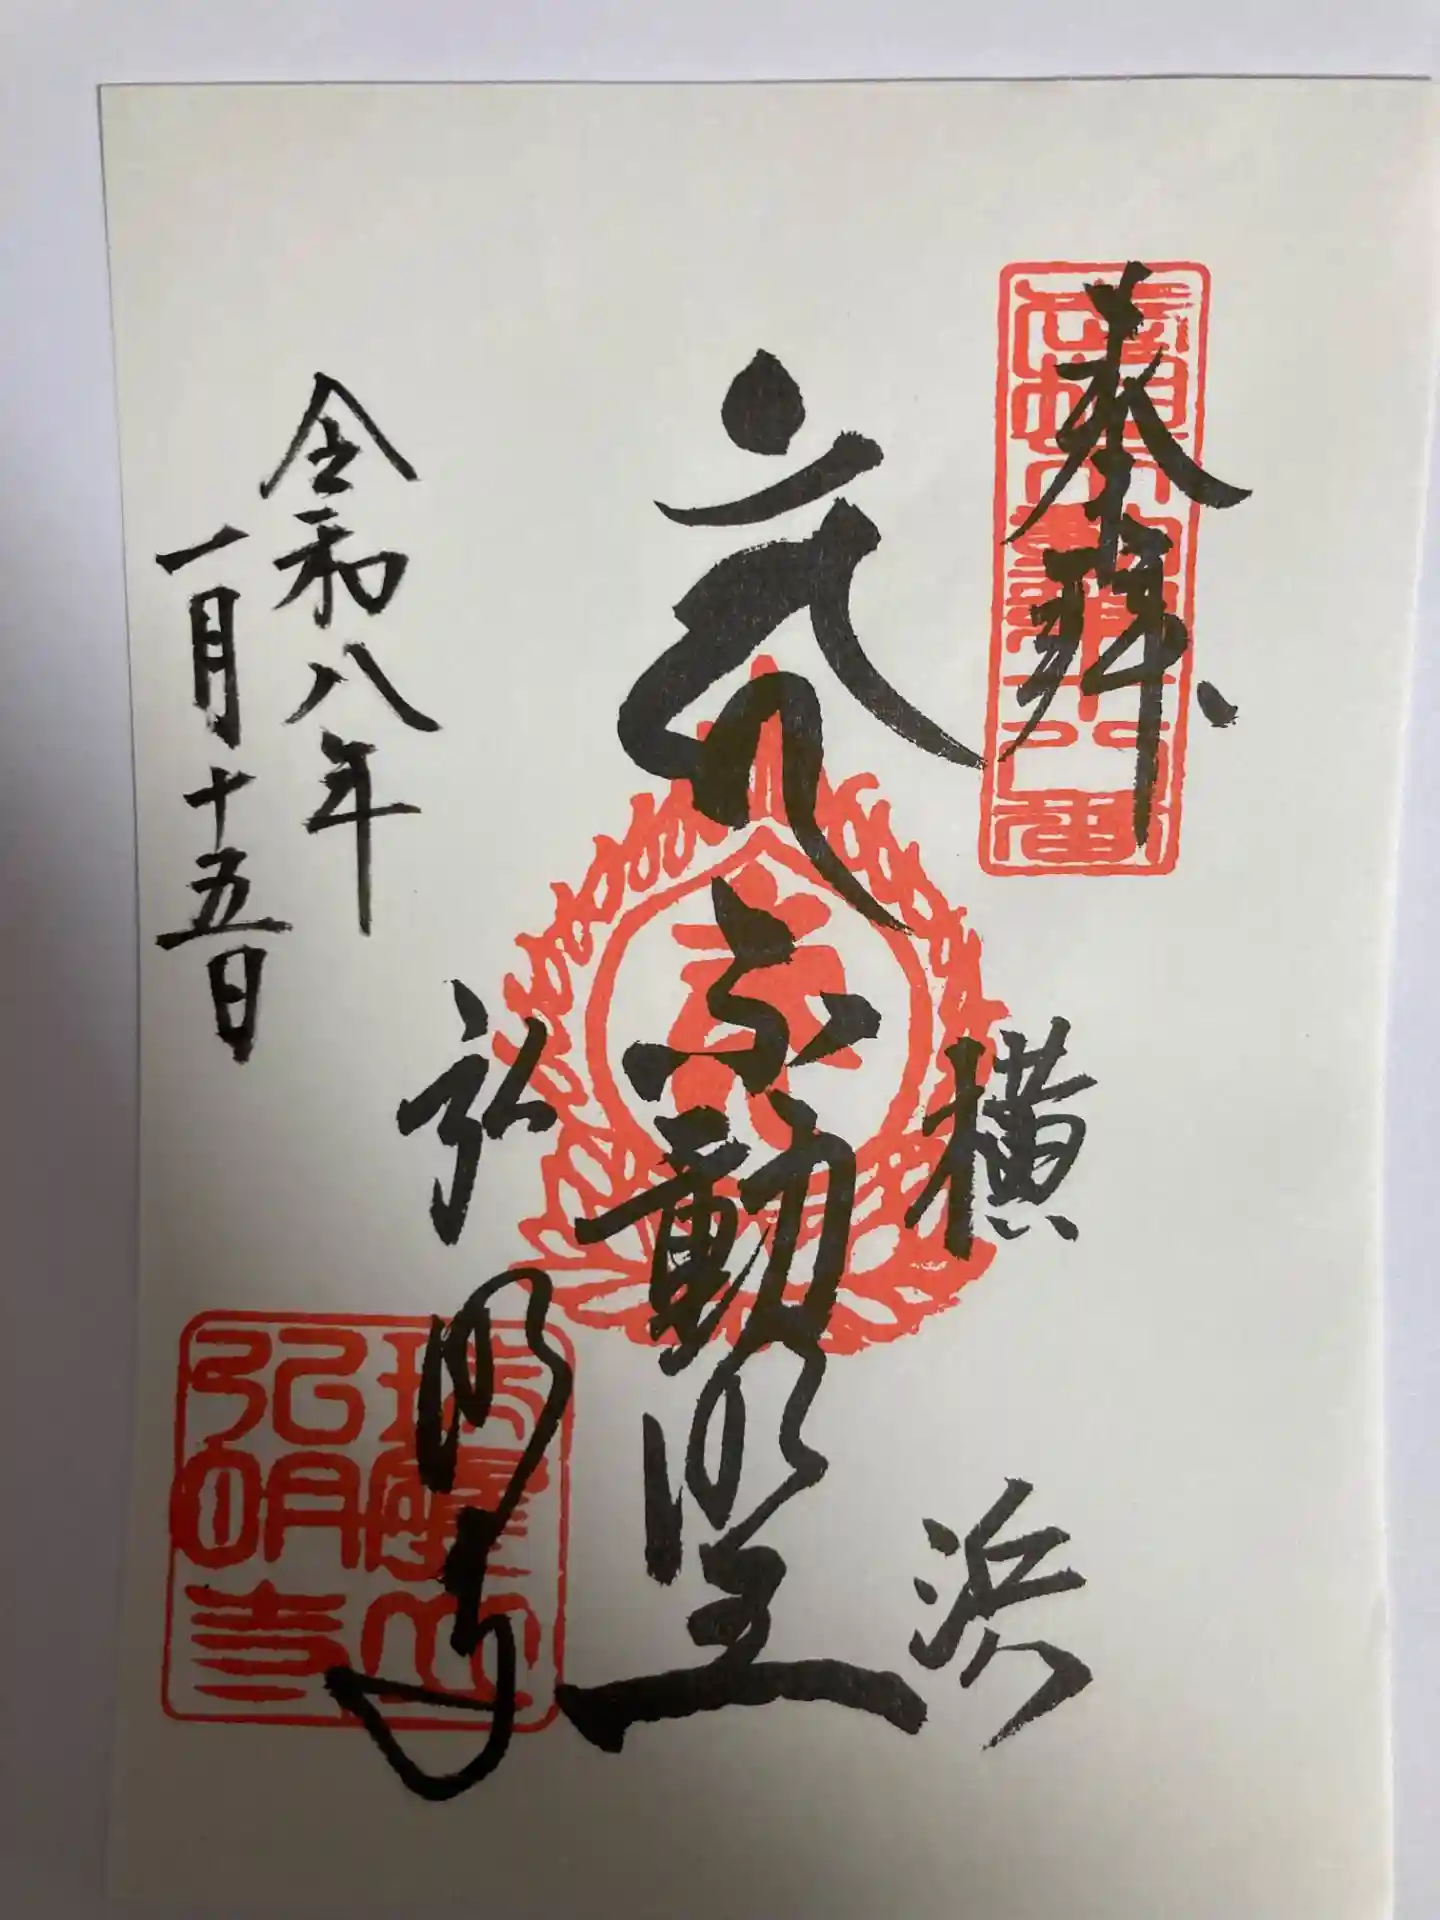 奉拝
横浜
不動明王
弘明寺
令和八年
一月十五日
瑞應山
弘明寺